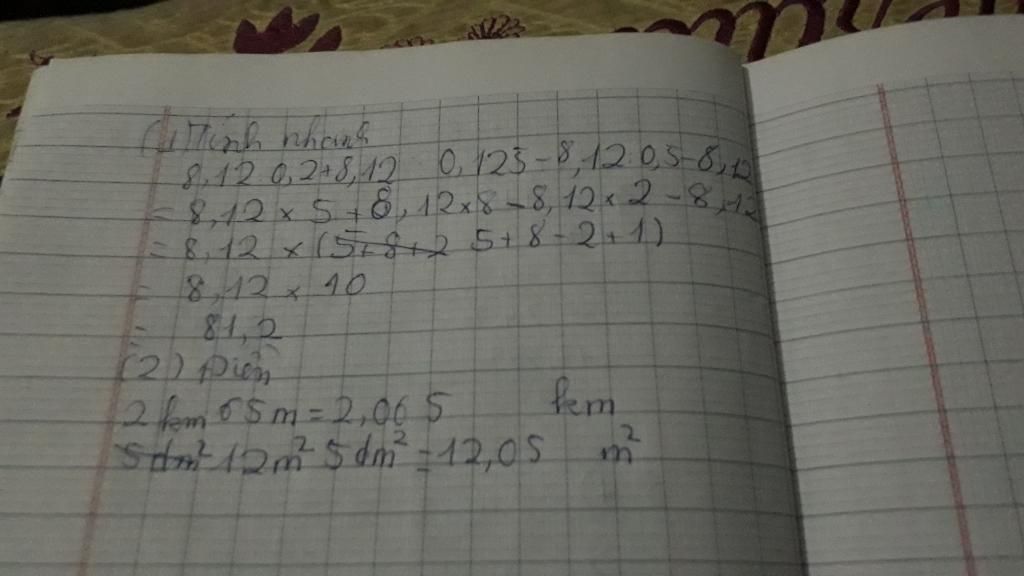 (1) Tính nhanh
8,12 0,2+8,12 0,125-8,12 0,5-8,12
= 8,12 × 5 + 8,12×8-8,12×2-8,12
= 8,12 × (5+8+2 5+8-2+1)
= 8,12 × 10
= 81,2
(2) Điền
2 km 65m = 2,065 km
5dm² 12m² 5dm² = 12,05 m²